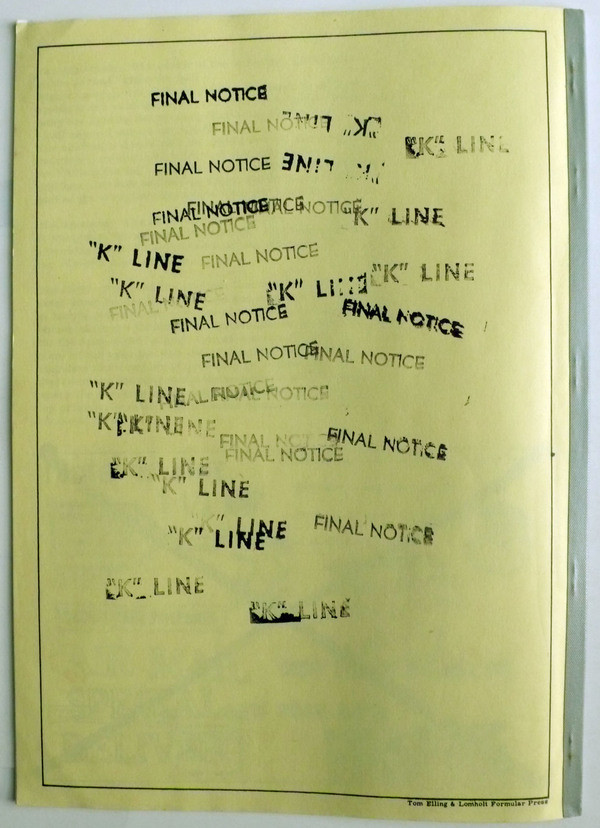 FINAL NOTICE
FINAL NOTICE "K" LINE
"K" LINE
FINAL NOTICE "K" LINE
FINAL NOTICE FINAL NOTICE FINAL NOTICE
"K" LINE
FINAL NOTICE
"K" LINE FINAL NOTICE
"K" LINE "K" LINE "K" LINE
FINAL NOTICE
FINAL NOTICE FINAL NOTICE
FINAL NOTICE FINAL NOTICE
"K" LINE FINAL NOTICE
"K" LINE
FINAL NOTICE FINAL NOTICE
FINAL NOTICE
"K" LINE
"K" LINE
"K" LINE FINAL NOTICE
"K" LINE
"K" LINE
"K" LINE
Tom Elling & Lomholt Formular Press